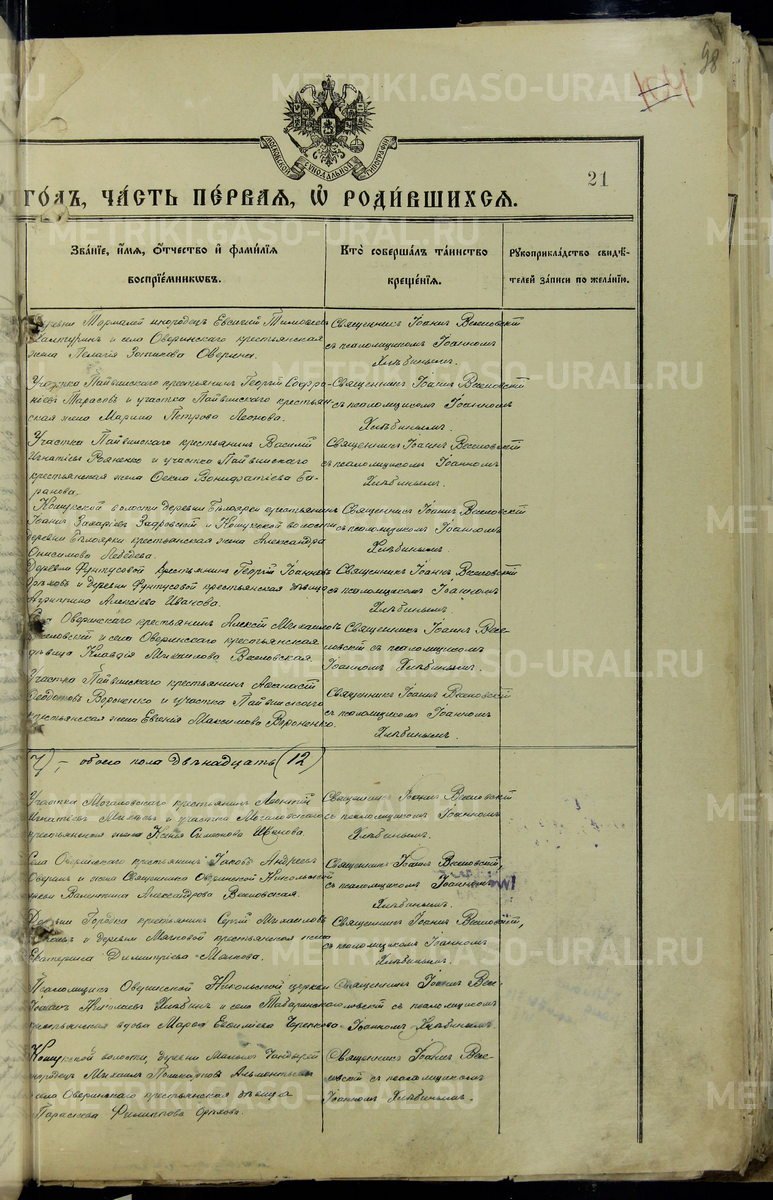 98
METRIKI.GASO-URAL.RU
МОСКОВСКОЙ СѴНОДАЛЬНОЙ ТИПОГРАФІИ
21
ГО́ДЪ, ЧА́СТЬ ПЕ́РВАЯ, Ѡ҆ РОДИ́ВШИХСЯ.
METRIKI.GASO-URAL.RU
Зва́нїе, и҆́мя, ѻ҆́тчество и҆ фами́лїя
воспрїе́мникѡвъ.
Кто̀ соверша́лъ та́инство
креще́нїя.
Рꙋкоприкла́дство свидѣ́-
телей за́писи по жела́нїю.
инородецъ Евгеній Тимофеевъ
и села Оверинскаго крестьянская
жена Пелагія Зотикова Оверина.
Священникъ Іоаннъ Весновскій
съ псаломщикомъ Іоанномъ
Хлѣбинымъ.
Участка Пайвинскаго крестьянинъ Георгій Софро-
ніевъ Тарасовъ и участка Пайвинскаго крестьян-
ская жена Марина Петрова Леонова.
Священникъ Іоаннъ Весновскій
съ псаломщикомъ Іоанномъ
Хлѣбинымъ.
Участка Пайвинскаго крестьянинъ Василій
Игнатіевъ и участка Пайвинскаго
крестьянская жена Ѳекла Вонифатіева Ба-
ранова.
Священникъ Іоаннъ Весновскій
съ псаломщикомъ Іоанномъ
Хлѣбинымъ.
Кошукской волости деревни Бѣлоярки крестьянинъ
Іоаннъ Захаріевъ и Кошукской волости
деревни Бѣлоярки крестьянская жена Александра
Онисимова Лебедева.
Священникъ Іоаннъ Весновскій
съ псаломщикомъ Іоанномъ
Хлѣбинымъ
Деревни Фунтусовой крестьянинъ Георгій Іоанновъ
и деревни Фунтусовой крестьянская дѣвица
Агриппина Алексіева Иванова.
Священникъ Іоаннъ Весновскій
съ псаломщикомъ Іоанномъ
Хлѣбинымъ.
Оверинскаго крестьянинъ Алексій Михаиловъ
Весновскій и села Оверинскаго крестьянская
дѣвица Клавдія Михаилова Весновская.
Священникъ Іоаннъ Вес-
новскій съ псаломщикомъ
Іоанномъ Хлѣбинымъ.
Участка Пайвинскаго крестьянинъ Аѳанасій
Ѳеодотовъ Вороненко и участка Пайвинскаго
крестьянская жена Евгенія Максимова Вороненко.
Священникъ Іоаннъ Весновскій
съ псаломщикомъ Іоанномъ
Хлѣбинымъ.
7), — обоего пола двѣнадцать (12)
Участка Могаловскаго крестьянинъ Леонтій
Игнатіевъ и участка Могаловскаго
крестьянская жена Ксенія Симонова Швакова.
Священникъ Іоаннъ Весновскій
съ псаломщикомъ Іоанномъ
Хлѣбинымъ.
Села Оверинскаго крестьянинъ Іаковъ Андреевъ
Оверинъ и жена Священника Оверинской Никольской
церкви Валентина Александрова Весновская.
Священникъ Іоаннъ Весновскій
съ псаломщикомъ Іоанномъ
Хлѣбинымъ.
Деревни Городка крестьянинъ Сергій Михаиловъ
и деревни Мягковой крестьянская жена
Екатерина Димитріева Мягкова.
Священникъ Іоаннъ Весновскій,
съ псаломщикомъ Іоанномъ
Хлѣбинымъ.
Псаломщикъ Оверинской Никольской церкви
Іоаннъ Николаевъ Хлѣбинъ и села Табаринскаго
крестьянская вдова Марфа
Священникъ Іоаннъ Вес-
новскій съ псаломщикомъ
Іоанномъ Хлѣбинымъ.
Кошукской волости, деревни
инородецъ Михаилъ
села Оверинскаго крестьянская дѣвица
Параскева Филиппова Орѣхова.
Священникъ Іоаннъ Вес-
новскій съ псаломщикомъ
Іоанномъ Хлѣбинымъ.